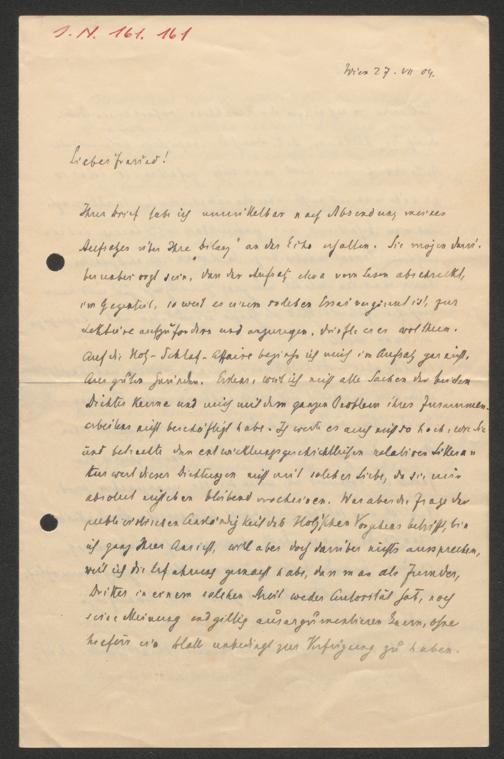 I. N. 161. 161
Wien 27. VII 04.
Lieber Freund!
Ihren Brief habe ich unmittelbar nach Absendung meines
Aufsatzes über Ihre an das Echo erhalten. Sie mögen darü-
ber unbesorgt sein, dass der Aufsatz etwa vom Lesen abschreckt,
im Gegenteil, so weit es einem soliden Essai vergönnt ist, zur
Lektüre aufzufordern und anzuregen, dürfte er es wol thun.
Auf die Holz-Schlaf-Affaire beziehe ich mich im Aufsatz gar nicht.
Aus guten Gründen. Erstens, weil ich nicht alle Sachen der beiden
Dichter kenne und mich mit dem ganzen Problem ihres Zusammen-
arbeitens nicht beschäftigt habe. Ich werte es auch nicht so hoch, wie Sie
und betrachte den entwicklungsgeschichtlichen relativen Littera-
turwert dieser Dichtungen nicht mit solcher Liebe, da sie mir
absolut nicht eben bleibend erscheinen. Was aber die Frage der
publizistischen Anständigkeit des Holz'schen Vorgehens betrifft, bin
ich ganz Ihrer Ansicht, will aber doch darüber nichts aussprechen,
weil ich die Erfahrung gemacht habe, dass man als Fremder,
Dritter in einem solchen Streit weder Autorität hat, noch
seine Meinung endgiltig ausargumentieren kann, ohne
hiefür ein Blatt unbedingt zur Verfügung zu haben.